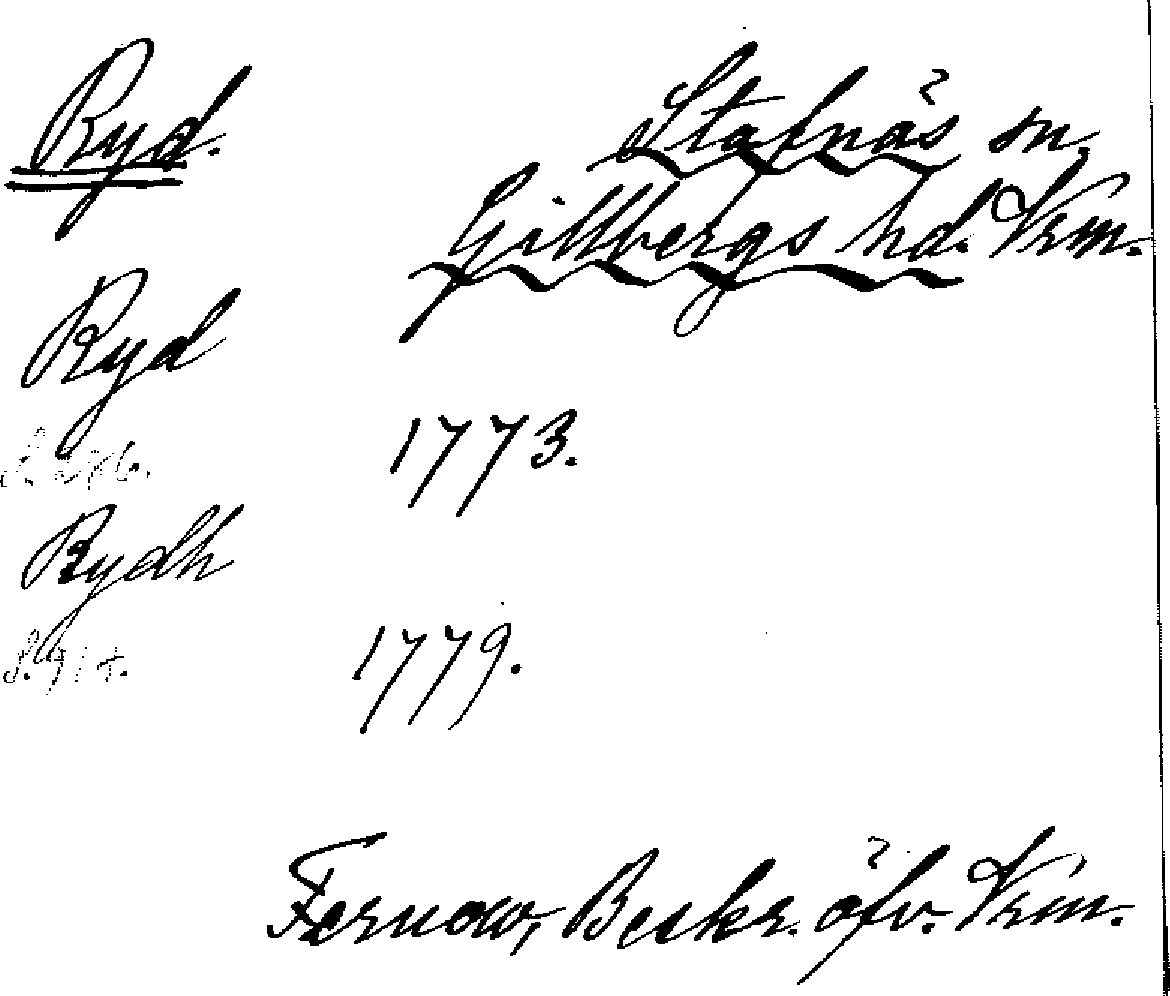 Ryd. Stafnäs sn.
Gillbergs hd. Vrm.
Ryd
1773.
Rydh
S. 914.
1779.
Fernow, Beskr. öfv. Vrm.